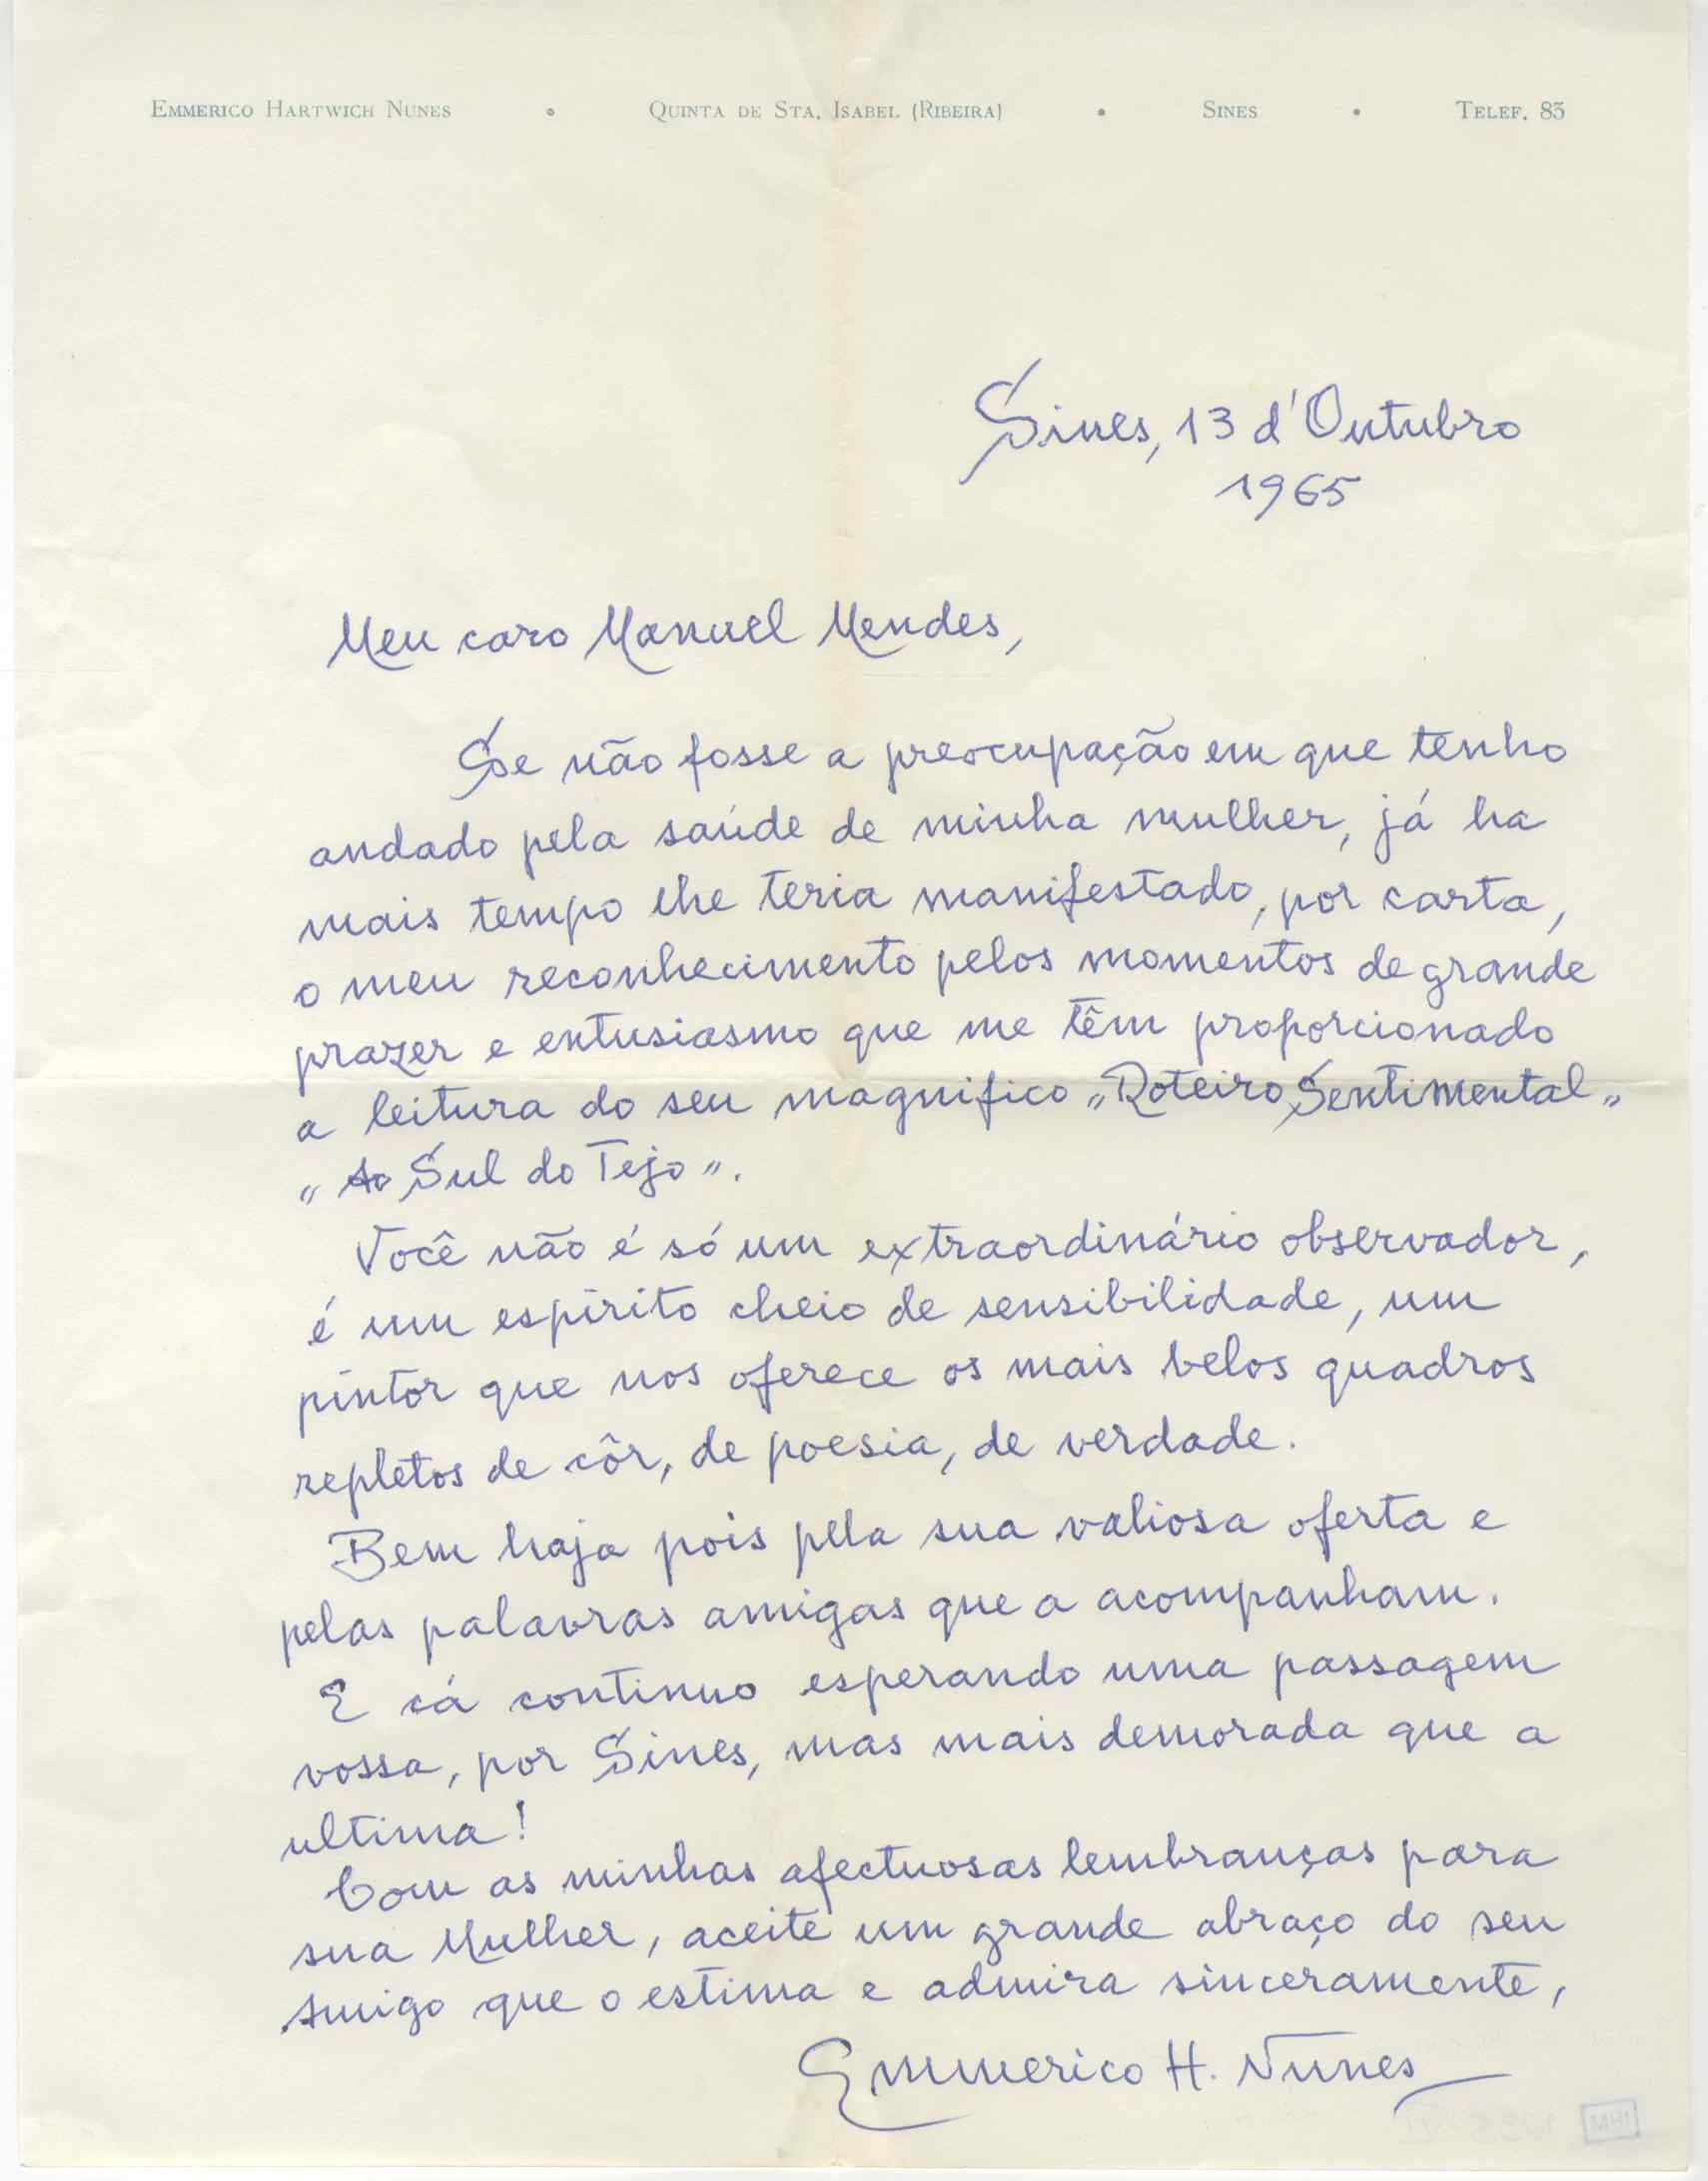 EMMERICO HARTWICH NUNES • QUINTA DE STA. ISABEL (RIBEIRA) • SINES • TELEF. 83
Sines, 13 d'Outubro
1965
Meu caro Manuel Mendes,
Se não fosse a preocupação em que tenho
andado pela saúde de minha mulher, já ha
mais tempo lhe teria manifestado, por carta,
o meu reconhecimento pelos momentos de grande
prazer e entusiasmo que me têm proporcionado
a leitura do seu magnifico „Roteiro Sentimental„
„Ao Sul do Tejo".
Você não é só um extraordinário observador,
é um espírito cheio de sensibilidade, um
pintor que nos oferece os mais belos quadros
repletos de côr, de poesia, de verdade.
Bem haja pois pela sua valiosa oferta e
pelas palavras amigas que a acompanham.
E cá continuo esperando uma passagem
vossa, por Sines, mas mais demorada que a
ultima!
Com as minhas afectuosas lembranças para
sua Mulher, aceite um grande abraço do seu
Amigo que o estima e admira sinceramente,
Emmerico H. Nunes